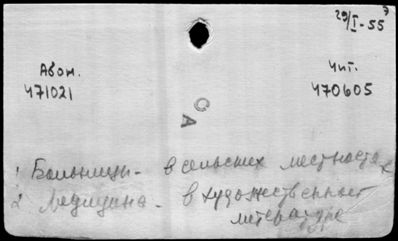 29/I-55 э
Абон. Чит.
471021 470605
С А
1 Больницы - в сельских местностях
2 Медицина - в художественной
литературе